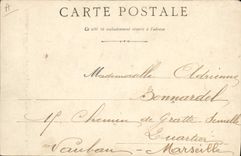 CARTE POSTALE
Ce côté est exclusivement réservé à l'adresse
Mademoiselle Adrienne
Bonnardel
15 Chemin de Gratte Semelle
Quartier
Vauban - Marseille